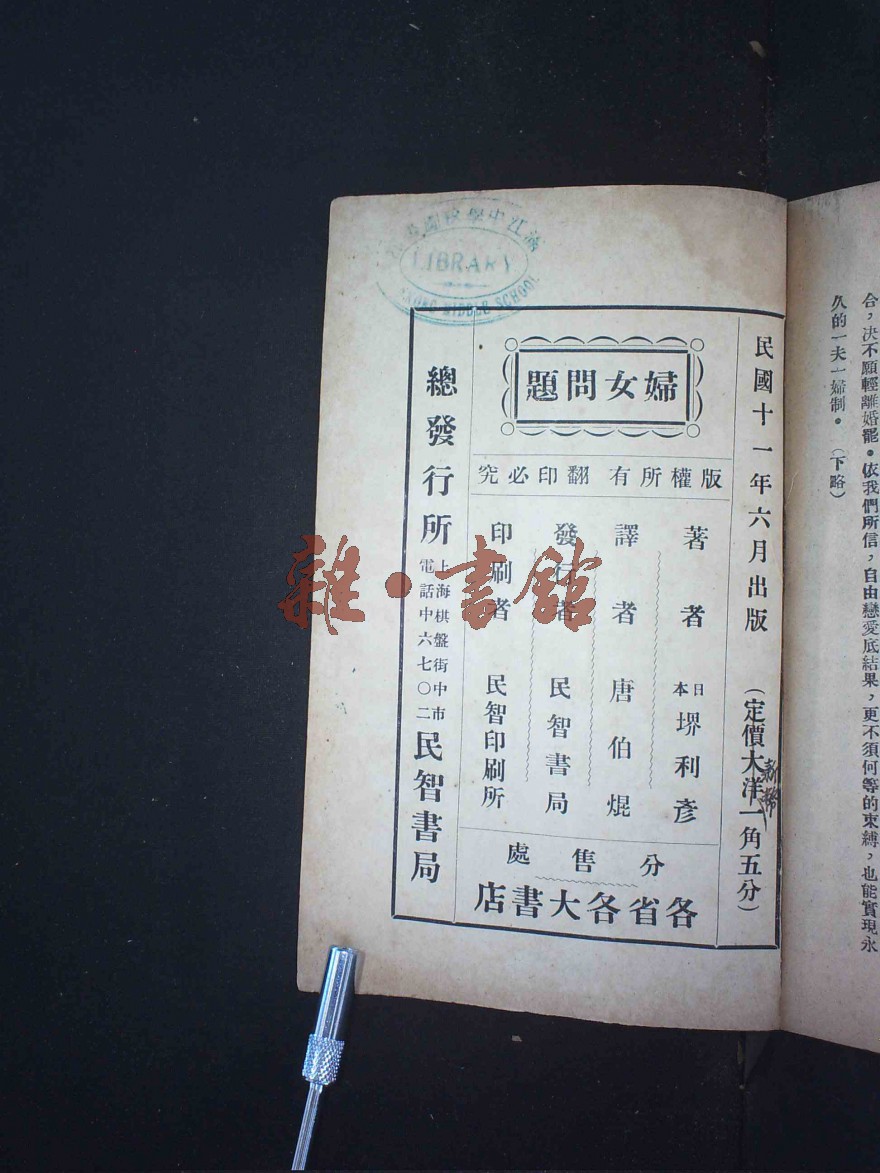 合，决不願輕離婚罷。依我們所信，自由戀愛底結果，更不須何等的束縛，也能實現永
久的一夫一婦制。（下略）
民國十一年六月出版　（定價大洋一角五分）
婦女問題
版權所有 翻印必究
著者 日本 堺利彥
譯者 唐伯焜
發行者 民智書局
印刷者 民智印刷所
分售處
各省各大書店
總發行所 上海棋盤街中市 電話中六七〇二 民智書局
LIBRARY
MIDDLE SCHOOL
雜·書館